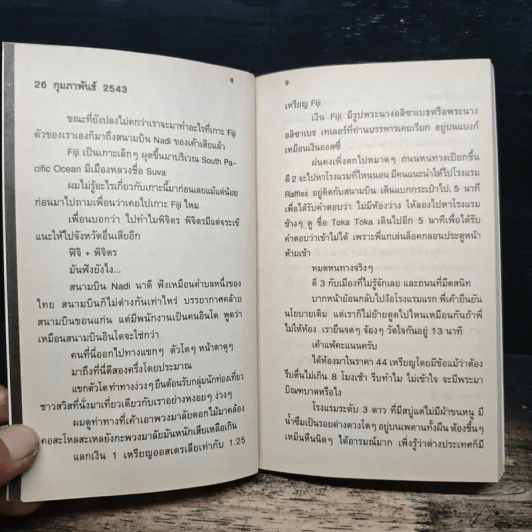 ๘
26 กุมภาพันธ์ 2543
ขณะที่ยังปลงไม่ตกว่าเราจะมาทำอะไรที่เกาะ Fiji
ตัวของเราเองก็มาถึงสนามบิน Nadi ของเค้าเสียแล้ว
Fiji เป็นเกาะเล็กๆ ผุดขึ้นมาบริเวณ South Pa-
cific Ocean มีเมืองหลวงชื่อ Suva
ผมไม่รู้อะไรเกี่ยวกับเกาะนี้มาก่อนเลยแม้แต่น้อย
ก่อนมาไปถามเพื่อนว่าเคยไปเกาะ Fiji ไหม
เพื่อนบอกว่า ไปทำไมพิจิตร พิจิตรมีแต่จระเข้
แนะให้ไปจังหวัดอื่นเสียอีก
ฟิจิ + พิจิตร
มันฟังยังไง...
สนามบิน Nadi นาดี ฟังเหมือนตำบลหนึ่งของ
ไทย สนามบินก็ไม่ต่างกันเท่าไหร่ บรรยากาศคล้าย
สนามบินขอนแก่น แต่มีพนักงานเป็นคนอินโด พูดว่า
เหมือนสนามบินอินโดจะใช่กว่า
คนที่นี่ออกไปทางแขกๆ ตัวโตๆ หน้าตาดุๆ
มาถึงที่นี่ตีสองครึ่งโดยประมาณ
แขกตัวโตท่าทางง่วงๆ ยืนต้อนรับกลุ่มนักท่องเที่ยว
ชาวสวิสที่นั่งมาเที่ยวเดียวกับเราอย่างหงอยๆ ง่วงๆ
ผมดูท่าทางที่เค้าเอาพวงมาลัยดอกไม้มาคล้อง
คอสะโหลสะเหลยังกะพวงมาลัยมันหนักเสียเหลือเกิน
แลกเงิน 1 เหรียญออสเตรเลียเท่ากับ 1.25
๙
เหรียญ Fiji
เงิน Fiji มีรูปพระนางอลิซาเบธหรือพระนาง
อลิซาเบธ เทเลอร์ที่ท่านบรรหารเคยเรียก อยู่บนแบงก์
เหมือนเงินออสซี่
ฝนคงเพิ่งตกไปหมาดๆ ถนนหนทางเปียกชื้น
ตี 2 จะไปหาโรงแรมที่ไหนนอน มีคนแนะนำให้ไปโรงแรม
Raffles อยู่ติดกับสนามบิน เดินแบกกระเป๋าไป 5 นาที
เพื่อได้รับคำตอบว่า ไม่มีห้องว่าง ให้ลองไปหาโรงแรม
ข้างๆ ดู ชื่อ Toka Toka เดินไปอีก 5 นาทีเพื่อได้รับ
คำตอบว่าเข้าไม่ได้ เพราะพี่แกเล่นล็อคกลอนประตูหน้า
ห้ามเข้า
หมดหนทางจริงๆ
ตี 3 กับเมืองที่ไม่รู้จักเลย และถนนที่มืดสนิท
บากหน้าย้อนกลับไปง้อโรงแรมแรก พี่เค้ายืนยัน
นโยบายเดิม แต่เราก็ไม่ย้ายตูดไปไหนเหมือนกันถ้าพี่
ไม่ให้ห้อง เรายืนจดๆ จ้องๆ วัดใจกันอยู่ 13 นาที
เค้าแพ้คะแนนครับ
ได้ห้องมาในราคา 44 เหรียญโดยมีข้อแม้ว่าต้อง
รีบตื่นไม่เกิน 8 โมงเช้า รีบทำไม ไม่เข้าใจ จะมีพระมา
บิณฑบาตหรือไง
โรงแรมระดับ 3 ดาว ที่มีสบู่แต่ไม่มีผ้าขนหนู มี
น้ำซึมเป็นรอยด่างดวงโตๆ อยู่บนเพดานทั้งผืน ห้องชื้นๆ
เหม็นหืนนิดๆ ได้อารมณ์มาก เพิ่งรู้ว่าต่างประเทศก็มี